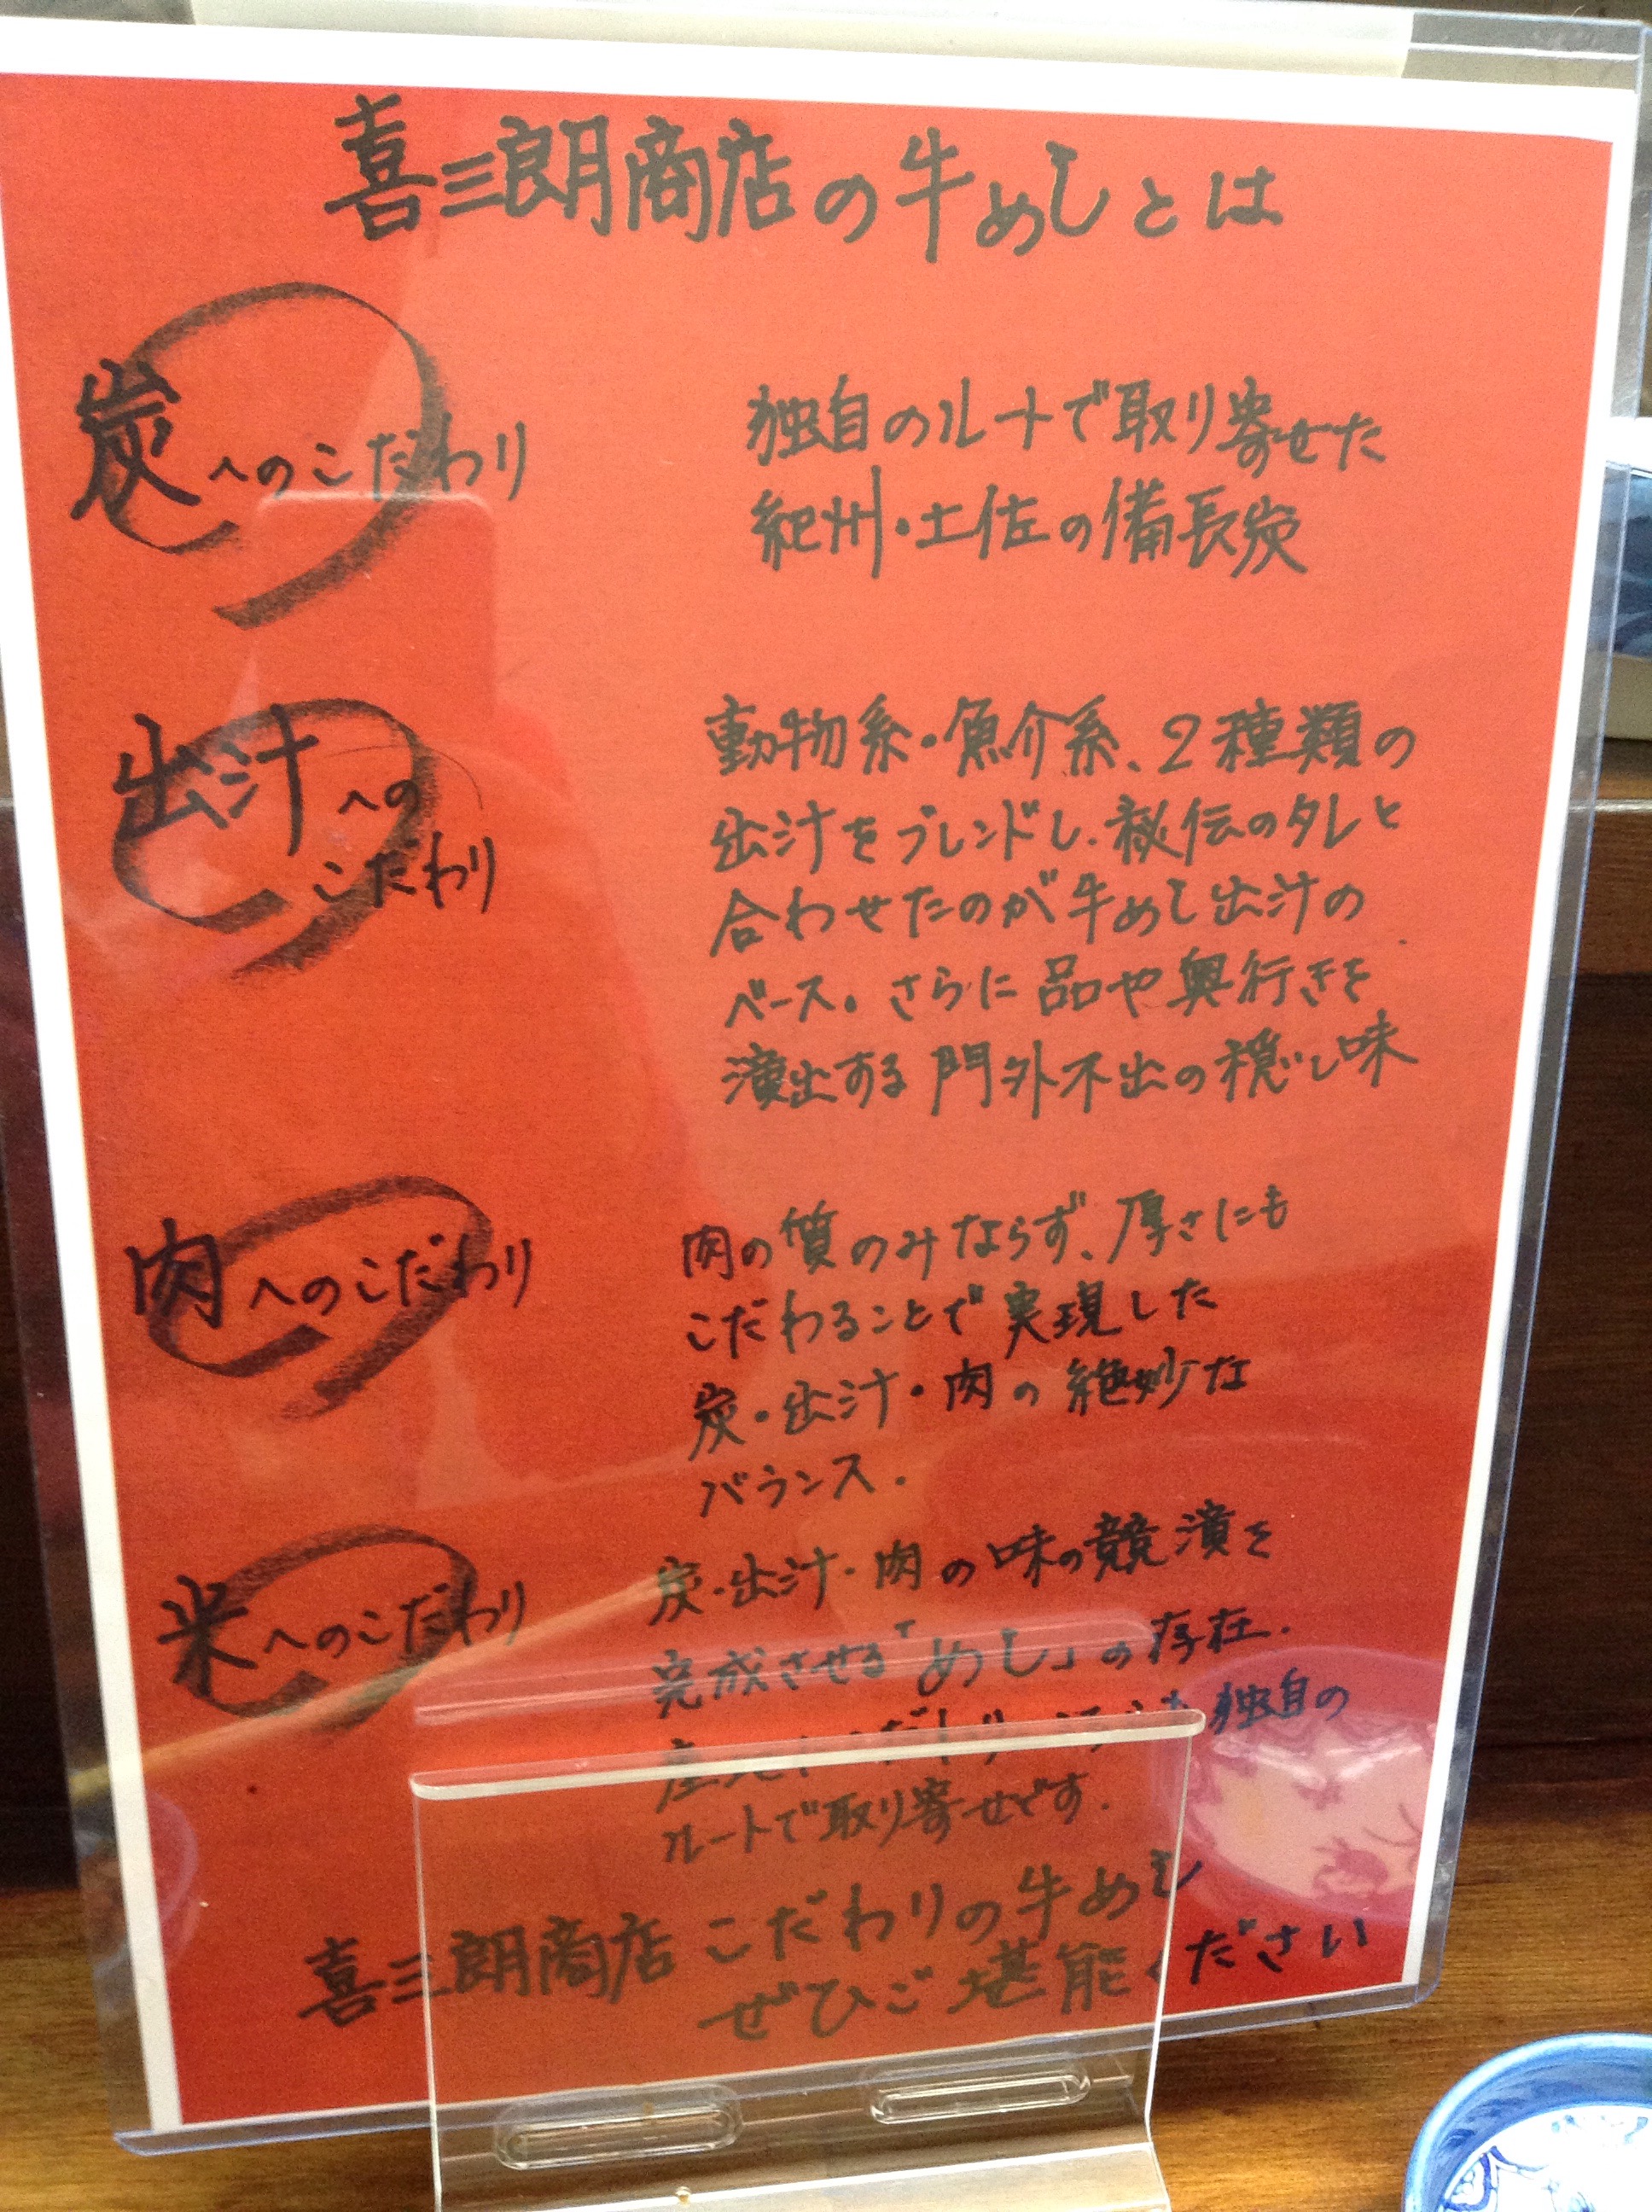 喜三郎商店の牛めしとは
炭へのこだわり
独自のルートで取り寄せた
紀州・土佐の備長炭
出汁への
こだわり
動物系・魚介系、2種類の
出汁をブレンドし、秘伝のタレと
合わせたのが牛めし出汁の
ベース。さらに品や奥行きを
演出する門外不出の穏し味
肉へのこだわり
肉の質のみならず、厚さにも
こだわることで実現した
炭・出汁・肉の絶妙な
バランス.
米へのこだわり
炭・出汁・肉の味の競演を
完成させる「めし」の存在.
独自の
ルートで取り寄せです.
喜三郎商店こだわりの牛めし
ぜひご堪能ください